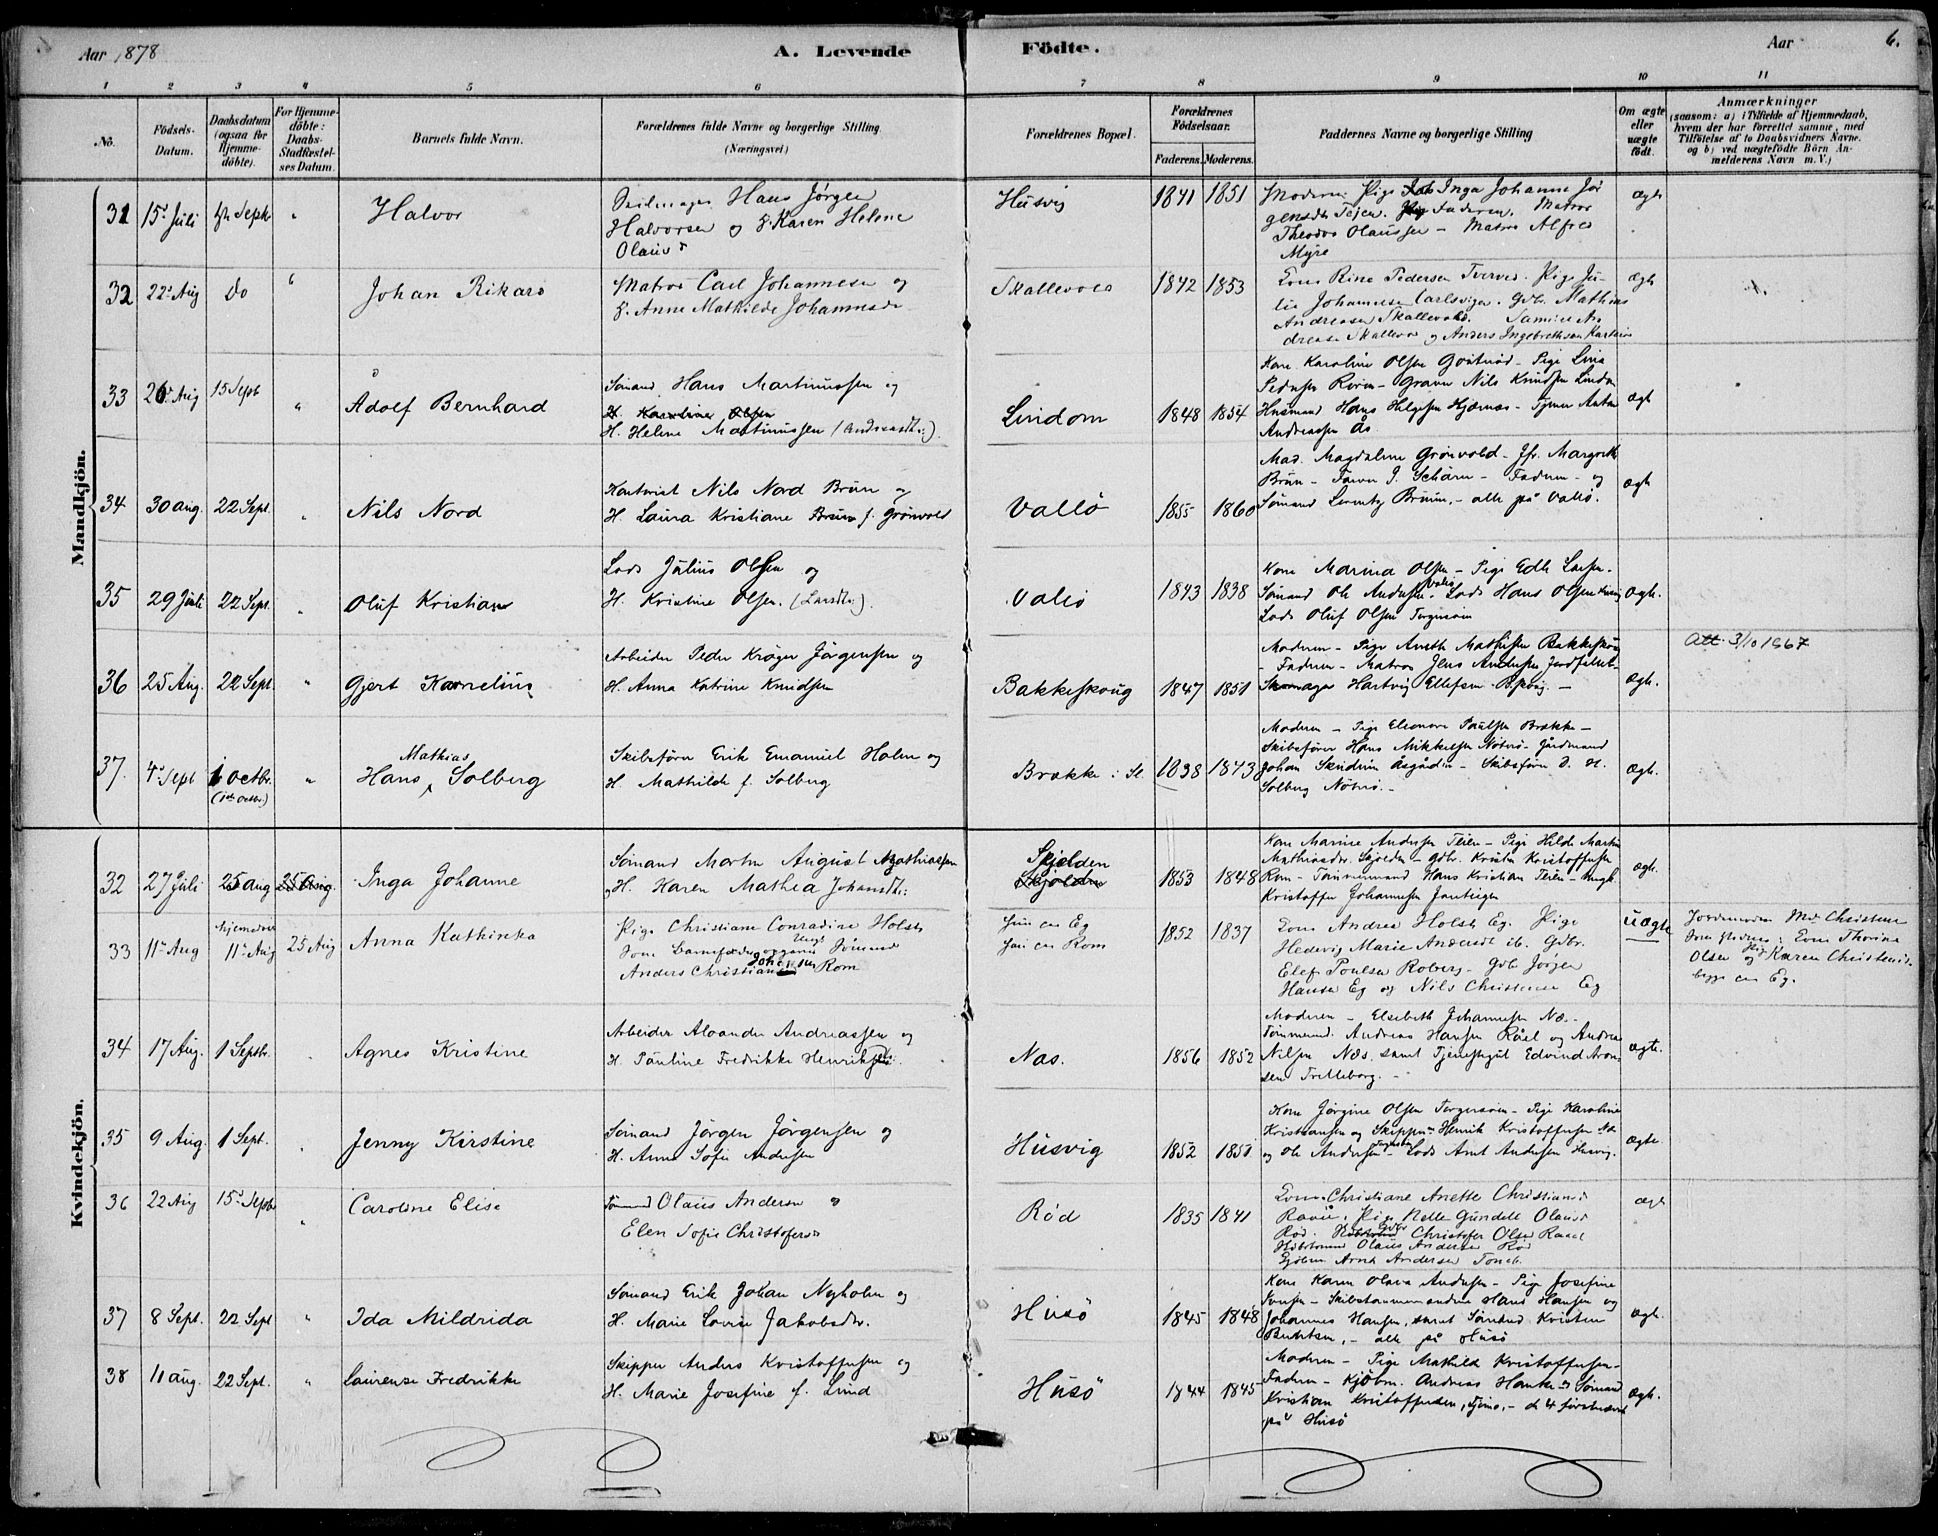 Aar 1878
A. Levende Födte.
Aar
6.
1 2 3 4 5 6 7 8 9 10 11
No.
Födsels-Datum.
Daabsdatum (ogsaa for Hjemme-döbte).
For Hjemme-döbte: Daabs-Stadfæstel-ses Datum.
Barnets fulde Navn.
Forældrenes fulde Navne og borgerlige Stilling. (Næringsvei)
Forældrenes Bopæl.
Forældrenes Födselsaar.
Faderens. Moderens.
Faddernes Navne og borgerlige Stilling
Om ægte eller uægte födt.
Anmærkninger
(saasom: a) i Tilfælde af Hjemmedaab,
hvem der har forrettet samme, med
Tilföielse af to Daabsvidners Navne.
og b) ved uægtefödte Börn An-
melderens Navn m. V.)
Mandkjön.
31 15 Juli Sept " Halvor
Hans Jørgen
Halvorsen og H. Karen Helene
Olausd
Husvig 1841 1851
Moderen. Pige Inga Johanne Jør
gensdt Teien. Faderen. Matros
Theodor Olaussen – Matros Alfred
Myre
ægte
32 22 Aug Do " Johan Rikard
Matros Carl Johannesen og
H. Anne Mathilde Johannesd
Skallevold 1842 1853
Kone Rine Pedersen Tverved. Pige Ju-
lie Johannesen Carlsvigen. Gdbr. Mathias
Andreasen Skallevold. An
dreasen Skallevold og Anders Ingebrethsen
ægte
33 26 Aug 15 Sept " Adolf Bernhard
Sömand Hans Martinussen og
H. Karoline Olsen
H. Helene Martinussen (Andreasdtr.).
Lindom 1848 1854
Kone Karoline Olsen – Pige Lina
Pedersen – Graver Nils Knudsen Lindom
Husmand Hans Helgesen – Tjener Anton
Andreassen Ås.
ægte
34 30 aug. 22 Sept. " Nils Nord
Kontorist Nils Nord Brun og
H. Laura Kristiane Brun f. Grønvold
Vallö 1855 1860
Mad. Magdalene Grønvold – Jfr. Margrethe
Brun – Farver J. Scharn – Faderen – og
Sömand Lorentz Bruun, – alle på Vallö.
ægte
35 29 Juli 22 Sept. " Oluf Kristian
Lods Julius Olsen og
H. Kristine Olsen. (Larsdtr.).
Valiö 1843 1838
Kone Marina Olsen – Pige Edle Larsen.
Sömand Ole Andersen. Lods Hans Olsen
Lods Oluf Olsen Torgersöen
ægte.
36 25 Aug. 22 Sept. " Gjert Kornelius
Arbeider Peder Krøger Jørgensen og
H. Anna Katrine Knudsen
Bakkeskoug 1847 1851
Moderen – Pige Aneth Mathisen Bakkeskoug
– Faderen – Matros Jens Andersen
Skomager Hartvig Ellefsen –
ægte.
Att. 3/10 1967
37. 4 Sept 6 octbr. " Hans Mathias Solberg
Skibsförer Erik Emanuel Holm og
H. Mathilde f. Solberg
Brække i Sl. 1838 1843
Moderen – Pige Eleonore Paulsen Brække –
Skibsförer Hans Mikkelsen Nöterö – Gårdmand
Johan Åsgården – Skibsförer
Solberg Nöterö. –
ægte.
Kvindekjön.
32 27 Juli 25 aug 25 Aug. Inga Johanne
Sömand Martin August Mathiassen
og H. Karen Mathea Johansdtr.
Skjelden 1853 1848
Kone Marine Andersen Teien – Pige Hilde Martin
Mathiasdtr. – Gdbr. Kristen Kristoffersen
Rom – Tömmermand Hans Kristian Teien – Ungk.
Kristoffer Johannessen
ægte.
33 11 Aug 11 Aug 25 Aug Anna Kathinka
Pige Christiane Conradine Holst
Som Barnefader opgivet Ungk. Sömand
Anders Christian Rom
hun er Eg
han er Rom
1852 1837
Kone Andrea Holst Eg. Pige
Hedevig Marie Andersdt ib. Gdbr.
Elef Poulsen Roberg – Gdb Jörgen
Hansen Eg og Nils Christensen Eg
uægte
Jordemoder Md. Christensen
Kone Thorine
Olsen og Pige Karen Christensd.
begge er Eg.
34 17 Aug. 1 Septbr. Agnes Kristine
Arbeider Alexander Andreassen og
H. Pauline Fredrikke Henriksen.
Næs. 1856 1852
Moderen – Elsebeth Johannesen Næ. –
Tömmermd. Andreas Hansen Råel og Andreas
Nilsen Næs, samt Tjenestegut Edvind Aron-
sen Trelleborg. –
ægte.
35 9 Aug. 1 Sept. Jenny Kirstine
Sömand Jörgen Jörgensen og
H. Anne Sofie Andersen
Husvig 1852 1851
Kone Jörgine Olsen Torgersöen – Pige Karoline
Kristiansen og Skipper Henrik Kristoffersen
og Ole Andersen – Lods Arnt Andersen Husvig.
ægte
36 22 Aug 15 Septbr " Caroline Elise
Olaus Andersen og
Elen Sofie Christofersd
Röd 1835 1841
Kone Christiane Anette Christiansd
Pige Nelle Gundell Olausd
Röd. Gdbr Christofer Olsen
Olaus Andersen Röd
Arnt Andersen
ægte
37 8 Sept. 22 Sept " Ida Mildrida
Sömand Erik Johan Nyholm og
H. Marie Lovise Jakobsdr.
Husö 1845 1848
Kone Karen Olava Andersen – Pige Josefine
– Skibstömmermændene Hans Hansen og
Johannes Hansen, samt Sömand Kristen
Berntsen, – alle på Husö
ægte.
38 11 aug. 22 Sept. " Laurense Fredrikke
Skipper Anders Kristoffersen og
H. Marie Josefine f. Lund
Husö 1844 1845
Moderen – Pige Mathilde Kristoffersen –
Faderen – Kjöbm. Andreas Hanke og Sömand
Kristian Kristoffersen, Tjömö, – de 4 förstnævnte
på Husö
ægte.